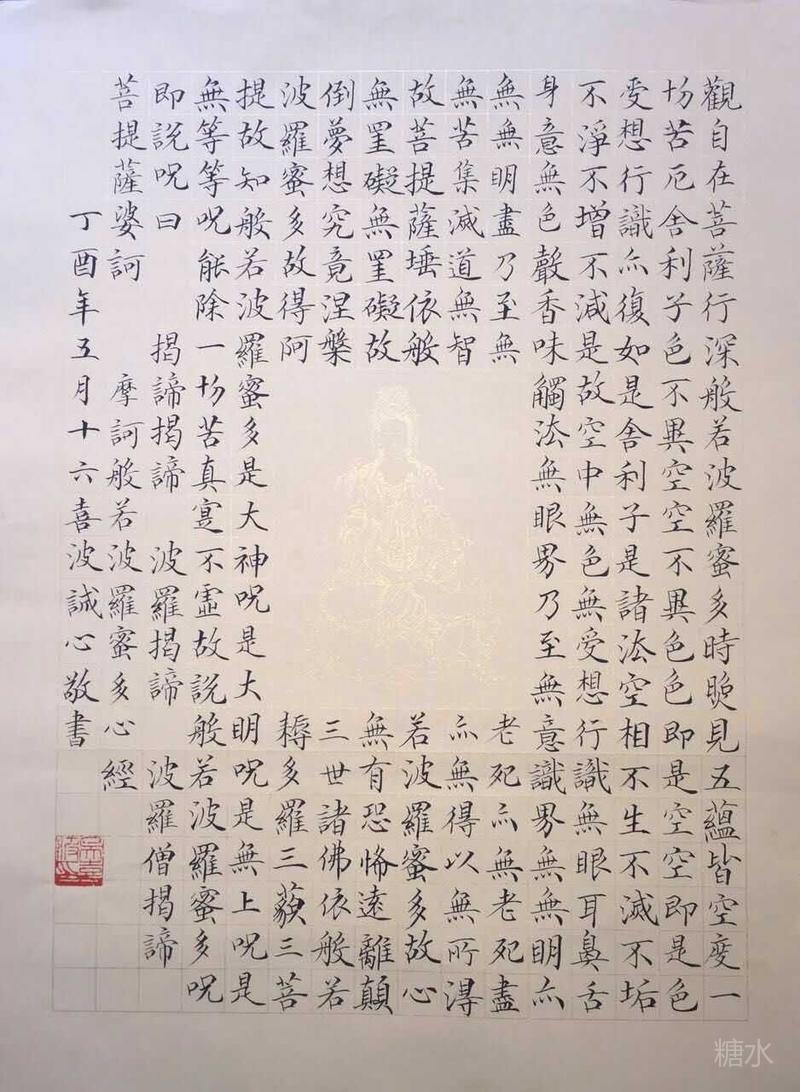 觀自在菩薩行深般若波羅蜜多時照見五蘊皆空度一
切苦厄舍利子色不異空空不異色色即是空空即是色
受想行識亦復如是舍利子是諸法空相不生不滅不垢
不淨不增不減是故空中無色無受想行識無眼耳鼻舌
身意無色聲香味觸法無眼界乃至無意識界無無明亦
無無明盡乃至無 老死亦無老死盡
無苦集滅道無智 亦無得以無所得
故菩提薩埵依般 若波羅蜜多故心
無罣礙無罣礙故 無有恐怖遠離顛
倒夢想究竟涅槃 三世諸佛依般若
波羅蜜多故得阿 耨多羅三藐三菩
提故知般若波羅蜜多是大神呪是大明呪是無上呪是
無等等呪能除一切苦真實不虛故說般若波羅蜜多呪
即說呪曰 揭諦揭諦 波羅揭諦 波羅僧揭諦
菩提薩婆訶 摩訶般若波羅蜜多心經
丁酉年五月十六喜波誠心敬書
糖水